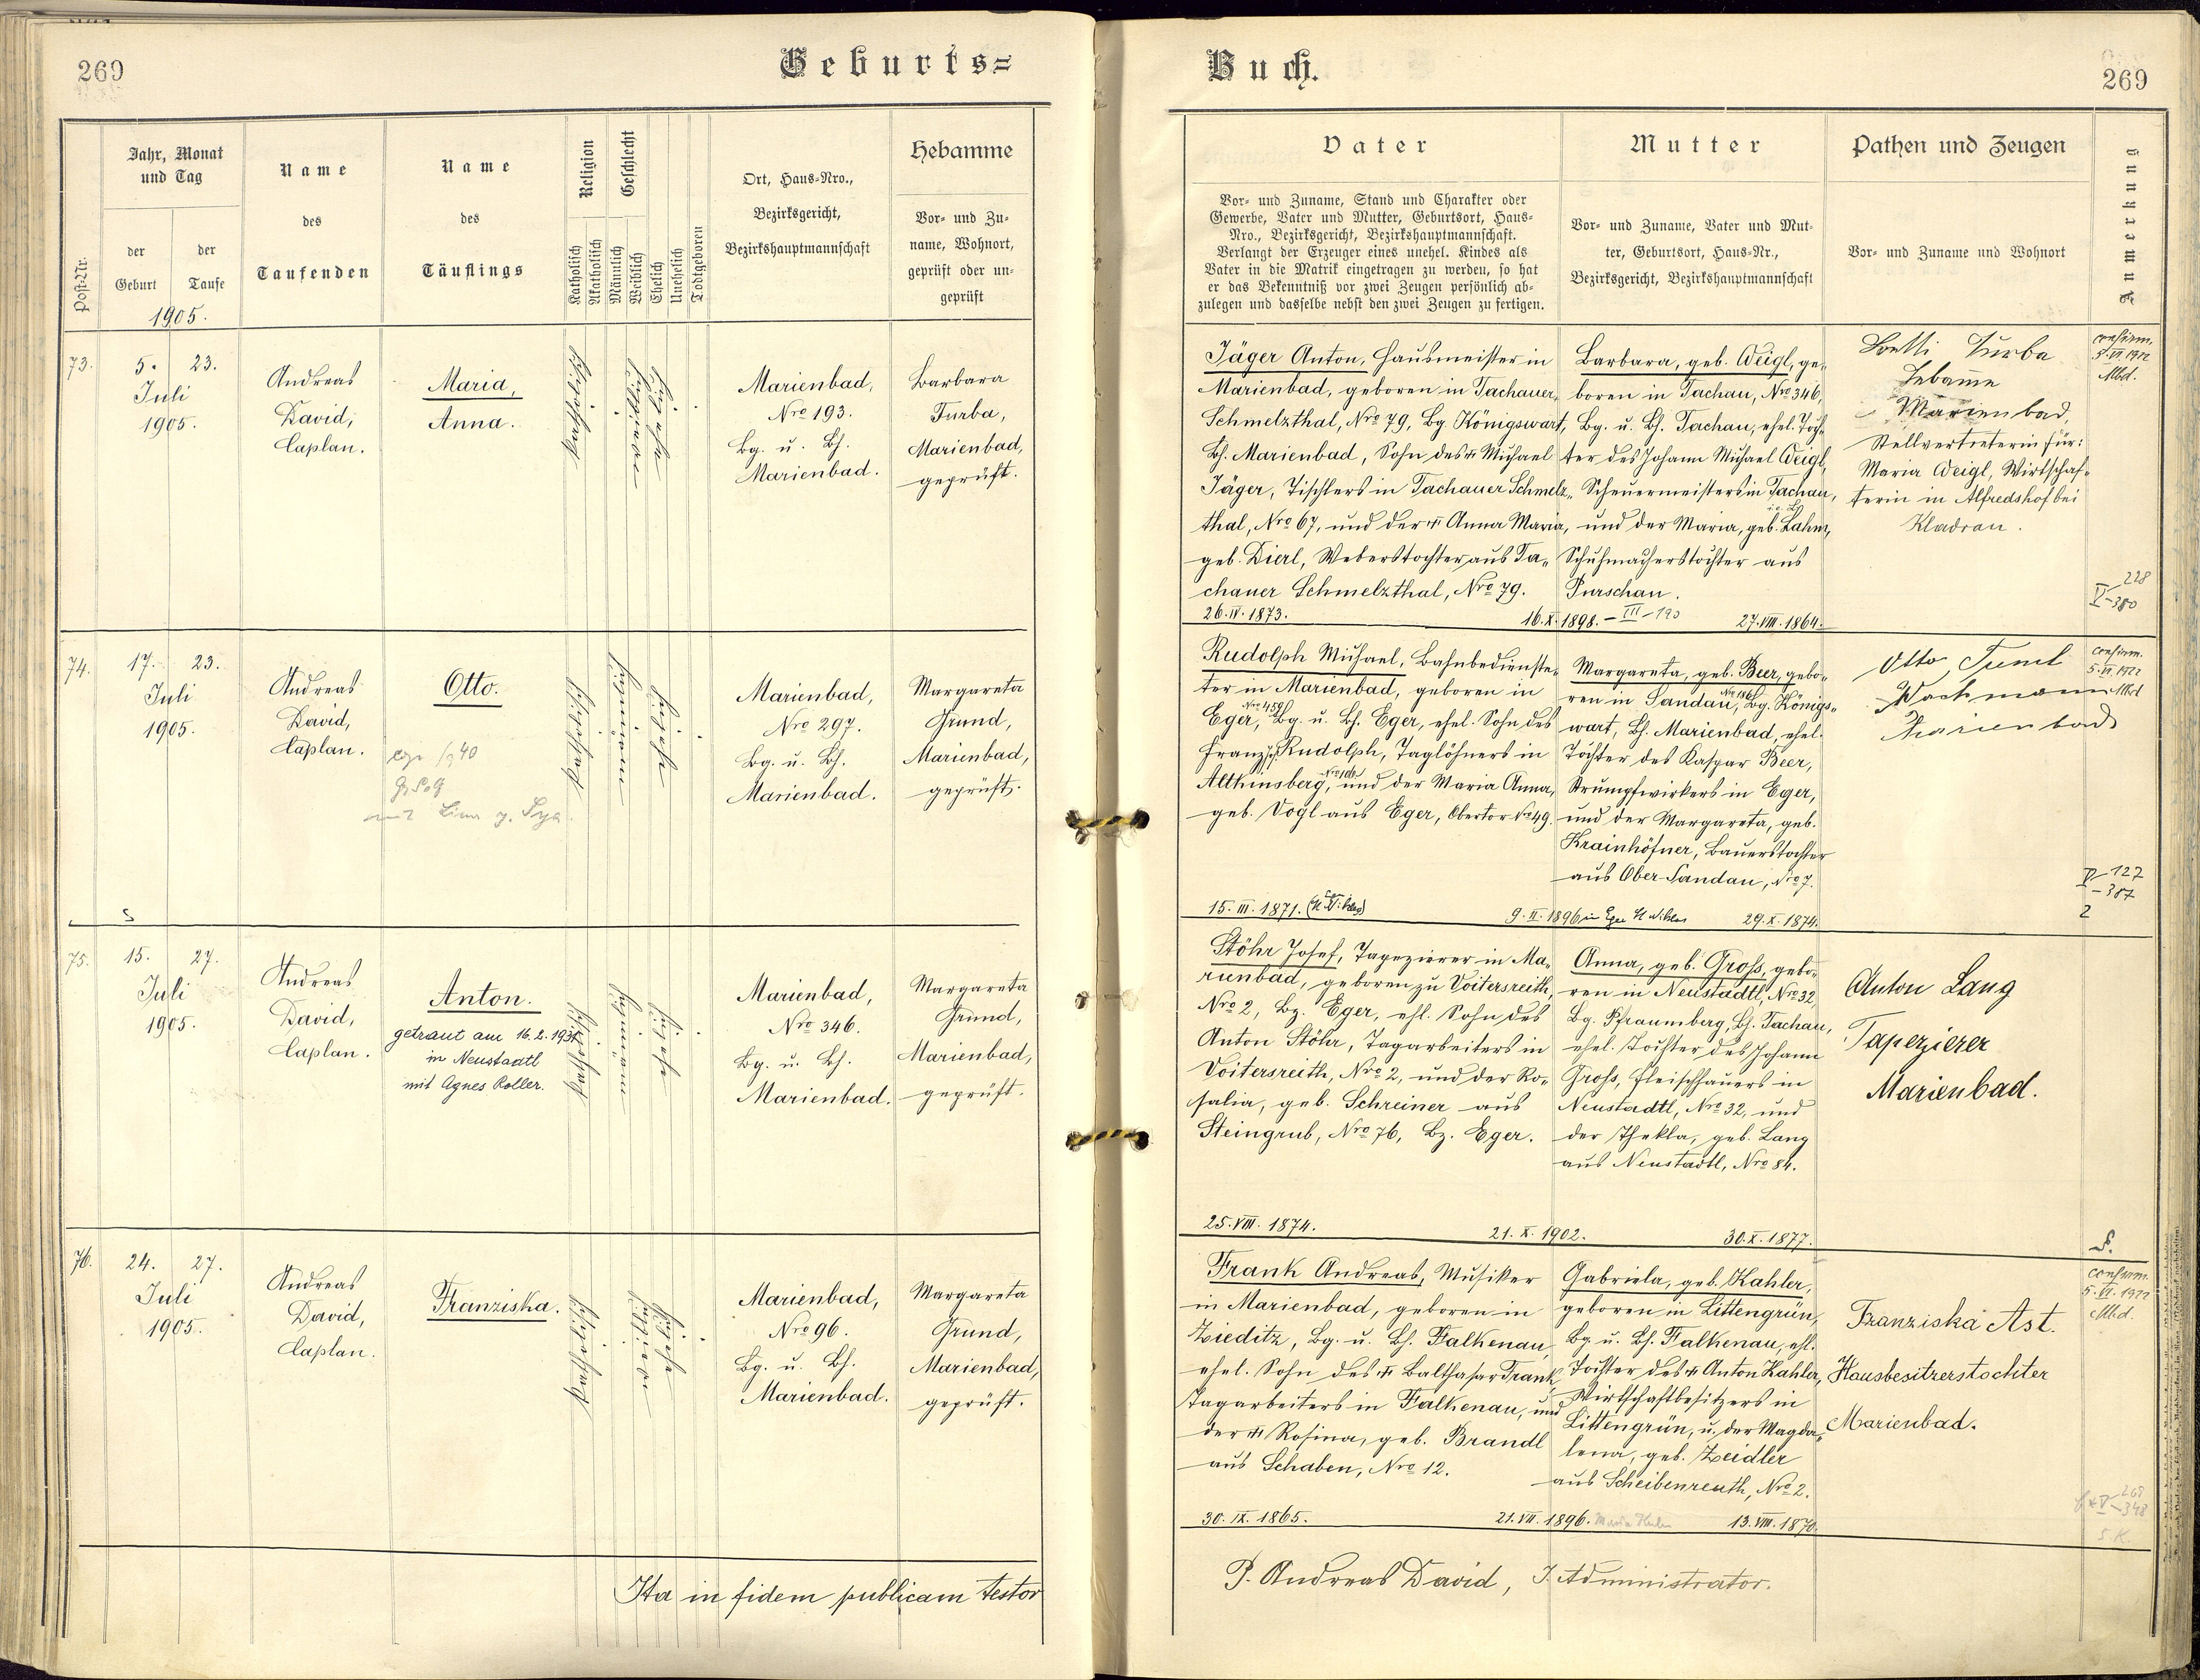 269
Geburts=
Jahr, Monat
und Tag
Name
Name
Religion
Geschlecht
Ort, Haus-Nro.,
Bezirksgericht,
Bezirkshauptmannschaft
Hebamme
Post-Nr.
der
Geburt
der
Taufe
des
Taufenden
des
Täuflings
Katholisch
Akatholisch
Männlich
Weiblich
Ehelich
Unehelich
Todtgeboren
Vor- und Zu-
name, Wohnort,
geprüft oder un-
geprüft
1905.
73.
5. 23.
Juli
1905.
Andreas
David,
Caplan.
Maria,
Anna.
katholisch
weiblich
ehelich
Marienbad,
Nro 193.
Bg. u. Bh.
Marienbad.
Barbara
Turba,
Marienbad,
geprüft.
74.
17. 23.
Juli
1905.
Andreas
David,
Caplan.
Otto.
katholisch
männlich
ehelich
Marienbad,
Nro 297.
Bg. u. Bh.
Marienbad.
Margareta
Grund,
Marienbad,
geprüft.
75.
15. 27.
Juli
1905.
Andreas
David,
Caplan.
Anton.
getraut am 16.2.1931
in Neustadtl
mit Agnes Roller.
katholisch
männlich
ehelich
Marienbad,
Nro 346.
Bg. u. Bh.
Marienbad.
Margareta
Grund,
Marienbad,
geprüft.
76.
24. 27.
Juli
1905.
Andreas
David,
Caplan.
Franziska.
katholisch
weiblich
ehelich
Marienbad,
Nro 96.
Bg. u. Bh.
Marienbad.
Margareta
Grund,
Marienbad,
geprüft.
Ita in fidem publicam testor
Buch.
269
Vater
Mutter
Pathen und Zeugen
Anmerkung
Vor- und Zuname, Stand und Charakter oder
Gewerbe, Vater und Mutter, Geburtsort, Haus-
Nro., Bezirksgericht, Bezirkshauptmannschaft.
Verlangt der Erzeuger eines unehel. Kindes als
Vater in die Matrik eingetragen zu werden, so hat
er das Bekenntniß vor zwei Zeugen persönlich ab-
zulegen und dasselbe nebst den zwei Zeugen zu fertigen.
Vor- und Zuname, Vater und Mut-
ter, Geburtsort, Haus-Nr.,
Bezirksgericht, Bezirkshauptmannschaft
Vor- und Zuname und Wohnort
Jäger Anton, Hausmeister in
Marienbad, geboren in Tachauer
Schmelzthal, Nro 79, Bg. Königswart,
Bh. Marienbad, Sohn des † Michael
Jäger, Tischlers in Tachauer Schmelz-
thal, Nro 67, und der † Anna Maria,
geb. Dierl, Weberstochter aus Ta-
chauer Schmelzthal, Nro 79.
26.IV.1873.
16.X.1898. - III - 190
Barbara, geb. Weigl, ge-
boren in Tachau, Nro 346,
Bg. u. Bh. Tachau, ehel. Toch-
ter des Johann Michael Weigl,
Scheuermeisters in Tachau,
und der Maria, geb. Lahm,
Schuhmacherstochter aus
Purschau.
27.VIII.1864.
Betti Turba
Hebame
Marienbad,
Stellvertreterin für:
Maria Weigl, Wirtschaf-
terin in Alfredshof bei
Kladrau.
confirm.
5.VI.1912
Mbd.
228
V-380
Rudolph Michael, Bahnbedienste-
ter in Marienbad, geboren in
Eger, Nro 459, Bg. u. Bh. Eger, ehel. Sohn des
Franz Rudolph, Taglöhners in
Altkinsberg, Nro 106, und der Maria Anna,
geb. Vogl aus Eger, Obertor Nro 49.
15.III.1871.
9.II.1896 in Eger St. Niklas
Margareta, geb. Beer, gebo-
ren in Sandau, Nro 186, Bg. Königs-
wart, Bh. Marienbad, ehel.
Tochter des Kaspar Beer,
Strumpfwirkers in Eger,
und der Margareta, geb.
Krainhöfner, Bauerstochter
aus Ober-Sandau, Nro 7.
29.X.1874.
Otto
Wachmann
Marienbad
confirm.
5.VI.1922
Mbd
V-127
-387
2
Stöhr Josef, Tapezierer in Ma-
rienbad, geboren zu Voitersreith,
Nro 2, Bz. Eger, ehl. Sohn des
Anton Stöhr, Tagarbeiters in
Voitersreith, Nro 2, und der Ro-
salia, geb. Schreiner aus
Steingrub, Nro 76, Bz. Eger.
25.VIII.1874.
21.X.1902.
Anna, geb. Groß, gebo-
ren in Neustadtl, Nro 32,
Bg. Pfraumberg, Bh. Tachau,
ehel. Tochter des Johann
Groß, Fleischhauers in
Neustadtl, Nro 32, und
der Thekla, geb. Lang
aus Neustadtl, Nro 84.
30.X.1877.
Anton Lang
Taperzierer
Marienbad.
Frank Andreas, Musiker
in Marienbad, geboren in
Zieditz, Bg. u. Bh. Falkenau,
ehel. Sohn des † Balthasar Frank,
Tagarbeiters in Falkenau, und
der † Rosina, geb. Brandl
aus Schaben, Nro 12.
30.IX.1865.
21.VII.1896.
Gabriela, geb. Kahler,
geboren in Littengrün,
Bg. u. Bh. Falkenau, ehl.
Tochter des † Anton Kahler,
Wirtschaftbesitzers in
Littengrün, u. der Magda-
lena, geb. Zeidler
aus Scheibenreuth, Nro 2.
13.VIII.1870.
Franziska Ast.
Hausbesitzerstochter
Marienbad.
confirm.
5.VI.1922
Mbd.
P. Andreas David, J. Administrator.